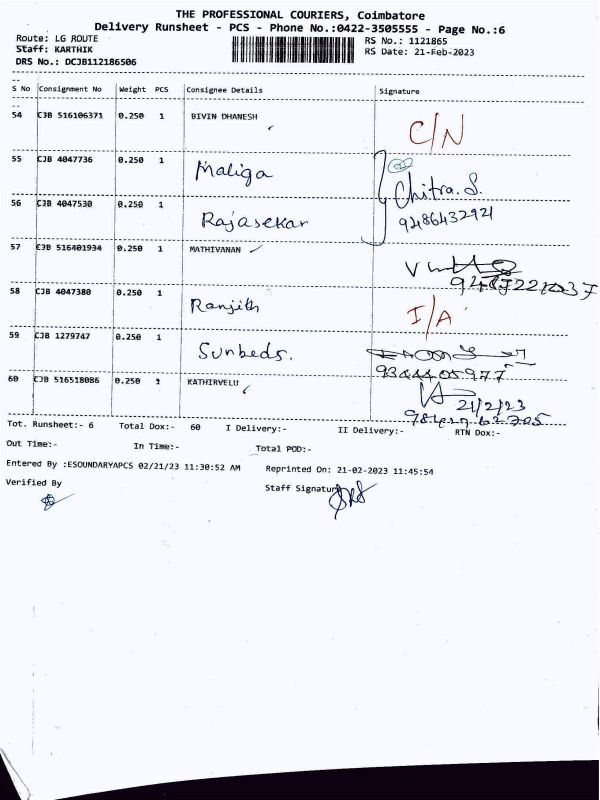 THE PROFESSIONAL COURIERS, Coimbatore
Delivery Runsheet - PCS - Phone No.:0422-3505555 - Page No.:6
Route: LG ROUTE
RS No.: 1121865
Staff: KARTHIK
RS Date: 21-Feb-2023
DRS No.: DCJB112186506
S No Consignment No Weight PCS Consignee Details Signature
54 CJB 516106371 0.250 1 BIVIN DHANESH C/N
55 CJB 4047736 0.250 1 Maliga Chitra. S.
56 CJB 4047530 0.250 1 Rajasekar 9486432921
57 CJB 516401934 0.250 1 MATHIVANAN
58 CJB 4047380 0.250 1 Ranjith I/A
59 CJB 1279747 0.250 1 Sunbeds.
9344405977
60 CJB 516518086 0.250 1 KATHIRVELU 21/2/23
Tot. Runsheet:- 6 Total Dox:- 60 I Delivery:- II Delivery:- RTN Dox:-
Out Time:- In Time:- Total POD:-
Entered By :ESOUNDARYAPCS 02/21/23 11:30:52 AM Reprinted On: 21-02-2023 11:45:54
Verified By Staff Signature